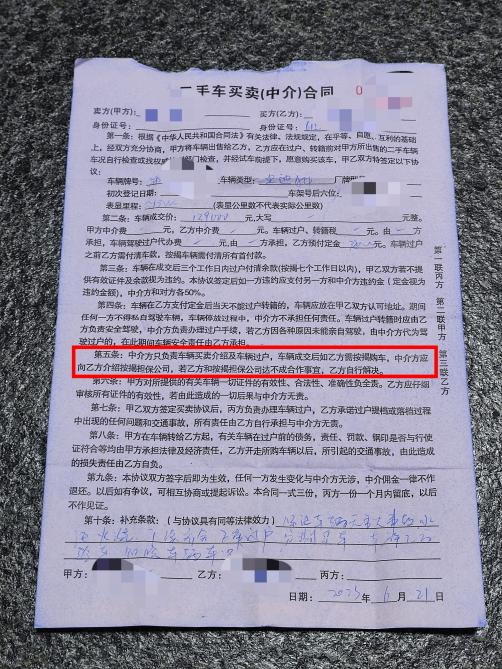 二手车买卖(中介)合同
卖方(甲方): 买方(乙方):
身份证号: 身份证号:
第一条：根据《中华人民共和国合同法》有关法律、法规规定，在平等、自愿、互利的基础
上，经双方充分协商，甲方将车辆出售给乙方，乙方应在过户、转籍前对甲方所出售的二手车辆
车况自行检查或找权威 部门检查，并经试车前提下，愿意购买该车，甲乙双方特签定以下协
议：
车辆牌号: 车辆类型: 厂牌型号
初次登记日期: 车架号后六位:
表显里程: (表显公里数不代表实际公里数)
第二条：车辆成交价： 129000 元,大写 元整。
甲方中介费 元,乙方中介费 元。车辆过户、转籍税 元,由 方
承担,车辆驾驶过户代办费 元,由 方承担。乙方预付定金 元。车辆过户
之前乙方需付清所有首付款。
第三条：车辆在成交后三个工作日内过户付清余款(按揭七个工作日以内)，甲乙双方若不提
供有效证件及余款视为违约。本协议签定后如一方违约应支付另一方和中介方违约金（定金视为
违约金额），中介方和对方各50%。
第四条：车辆在乙方付定金后当天不能过户转籍的，车辆应放在甲乙双方认可地址。期间
任何一方不得私自驾驶车辆，车辆停放过程中，中介方不承担任何责任。车辆过户转籍时应由乙
方负责安全驾驶，中介方负责办理过户手续，若乙方因各种原因未能亲自驾驶，由中介方代为驾
驶过户的，在此期间车辆安全和违章由乙方负责。
第五条：中介方只负责车辆买卖介绍及车辆过户，车辆成交后如乙方需按揭购车，中介方应
向乙方介绍按揭担保公司，若乙方和按揭担保公司达不成合作事宜，乙方自行解决。
第六条：甲方对所提供的有关车辆一切证件的有效性、合法性、准确性负全责。乙方应仔细
审核所有证件的有效性，若由此造成的一切后果与中介方无责。
第七条：甲乙双方签定买卖协议后，丙方负责办理车辆过户，乙方承诺过户提档或落档过程
中出现的任何问题和交通事故，所有责任由乙方自行承担与中介方无责。
第八条：甲方在车辆转给乙方起，有关车辆在过户前的债务，责任、罚款、钢印是否与行使
证符合等均由甲方承担法律及经济责任，乙方开走所购车辆以后，所引起的交通事故，由此造成
的损失责任由乙方自负。
第九条：本协议双方签字后即为生效，任何一方发生变化与中介方无涉，中介佣金一律不作
退还。以后如有争议，可相互协商或提起诉讼。本合同一式三份，丙方一份一个月内留底，以后
不作见证。
第十条：补充条款：（与协议具有同等法律效力）
甲方： 乙方： 丙方：
日期： 2023 年 6 月 21 日
第一联丙方
第二联甲方
第三联乙方